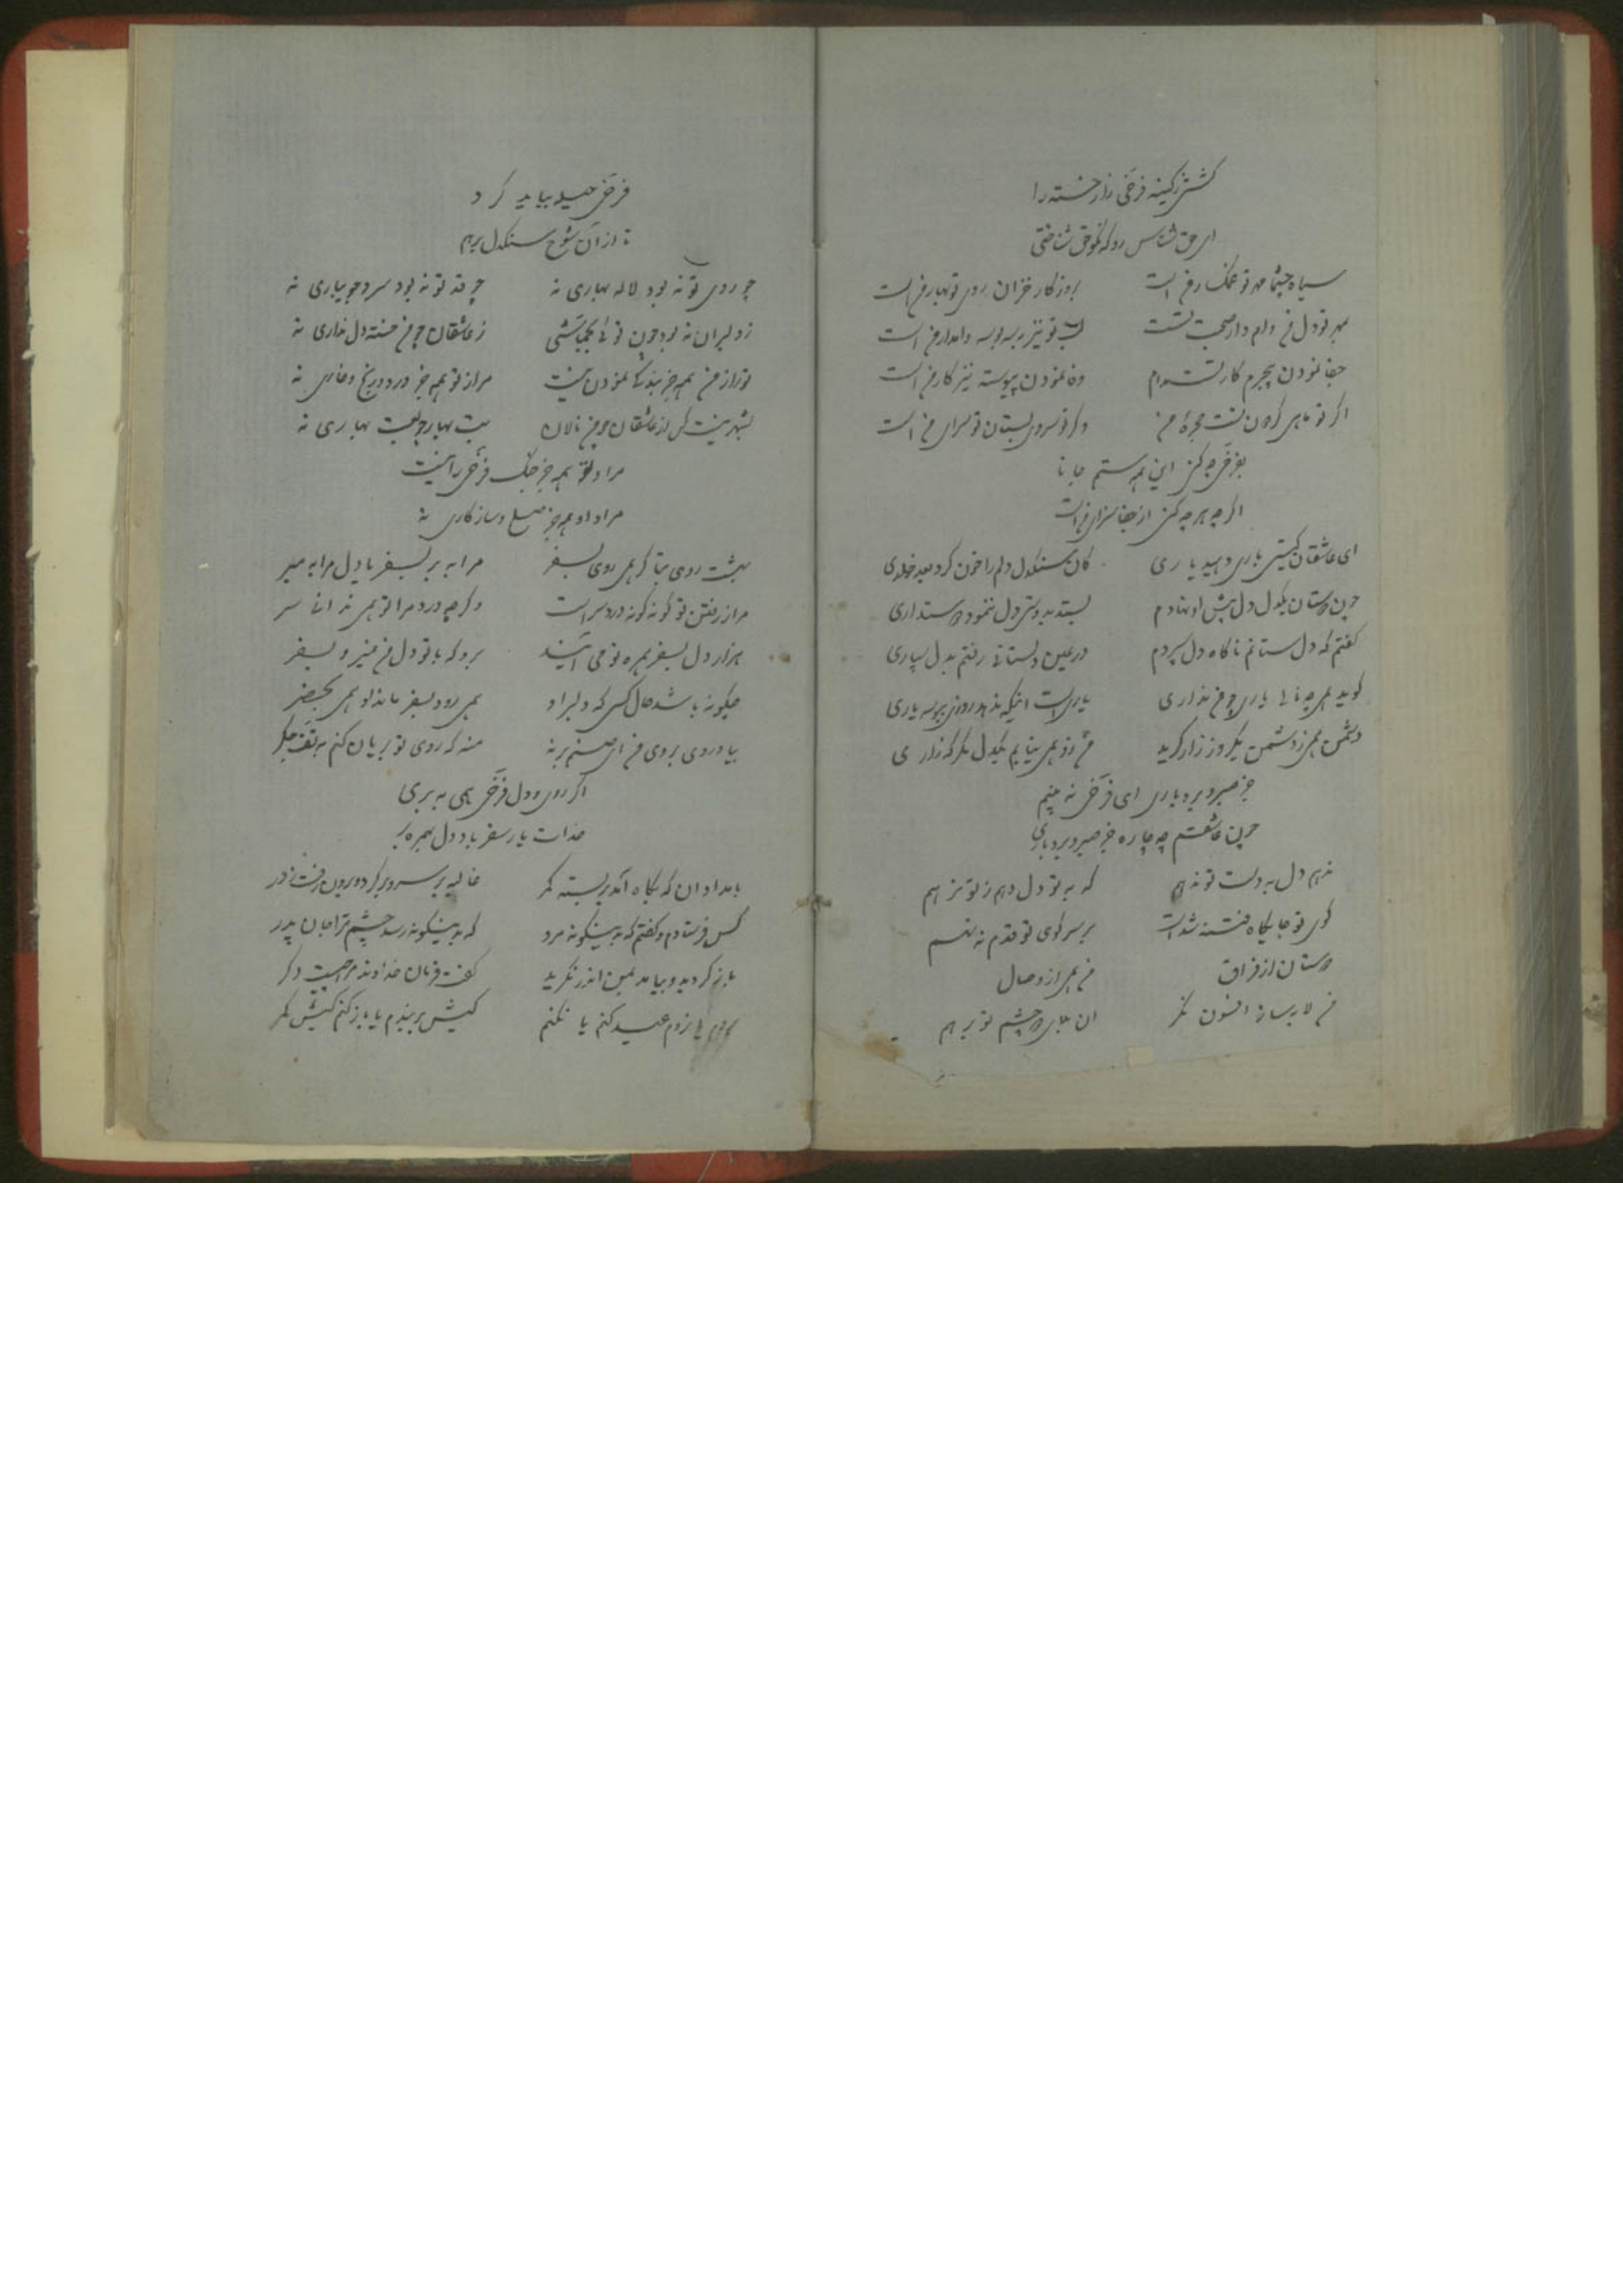 کشتی ز کینه فرخی زار خسته را
ای حق شناس رو که نکو حق شناختی
سیاه چشما مهر تو غمگسار من است بروزکار خزان روی تو بهار من است
بمهر تو دل من وام دار صحبت تست لب تو نیز ببوسه وامدار من است
جفا نمودن بیجرم کار تست مدام وفا نمودن پیوسته نیز کار من است
اگر تو ماهی گردون تست حجره من وگر تو سروی بستان تو سرای من است
بفرخی چه کنی این همه ستم جانا
اگر چه هر چه کنی از جفا سزای من است
ای عاشقان گیتی یاری دهید یاری کان سنگدل دلم را خون کرد
چون دوستان یکدل دل پیش او نهادم بستد بدوستی دل ننمود دوستداری
گفتم که دل ستانم ناگاه دل سپردم در عین دلستانی رفتم بدل سپاری
گوید همی چه نالی یاری چو من نداری یاری است اینکه ندهد روزی ببوسه یاری
دشمن همی ز دشمن یکروز زار گرید من زو همی نیابم یکدل مگر که زاری
جز صبر و بردباری ای فرخی نه بینم
چون عاشقم چه چاره جز صبر و بردباری
ندهم دل بدست تو ندهم که به تو دل دهم ز تو نرهم
کوی تو جایگاه فتنه شده است بر سر کوی تو قدم ننهم
دوستان از فراق من همی از وصال
من لابساز افسون گر ان بلای دو چشم تو برهم
فرخی حیله بباید کرد
تا از آن شوخ سنگدل برهم
چو روی تو نه بود لاله بهاری نه چو قد تو نه بود سرو جویباری نه
ز دلبران نه بود چون تو ز عاشقان چو من خسته دل نداری نه
تو را ز من همه جز بندگی نمودن نیست مرا ز تو همه جز درد و رنج و خاری نه
بشهر نیست کس از عاشقان چو من نالان بت بهار چو لعبت بهاری نه
مراد تو همه جز جنگ فرخی را نیست
مراد او همه جز صلح و سازگاری نه
بهشت روی بتا گر همی روی بسفر مرا به بر بسفر یا دل مرا به مبر
مرا ز رفتن تو گونه گونه درد سر است وگر چه درد مرا تو همی ندانی سر
هزار دل بسفر همره تو می آیند برو که با تو دل من نیز و بسفر
چگونه باشد حال کسی که دلبر او همی رود بسفر ماند او همی بحضر
بیا و روی بروی من ای صنم بر نه منه که روی تو بریان کنم به تف جگر
اگر روی و دل فرخی همی به بری
خدات یار سفر باد و دل همره بر
بامدادان که پگاه آمد بر بسته کمر غالیه بر سر و بر کرده و برون رفت ز در
کس فرستادم و گفتم که بدینگونه مرو که بدینگونه رسد چشم ترا جان پدر
باز گردید و بیامد بمن اندر نگرید گفت فرمان خداوند مرا چیست دگر
یا نکنم کیش بر بندم یا باز کنم کیش کمر